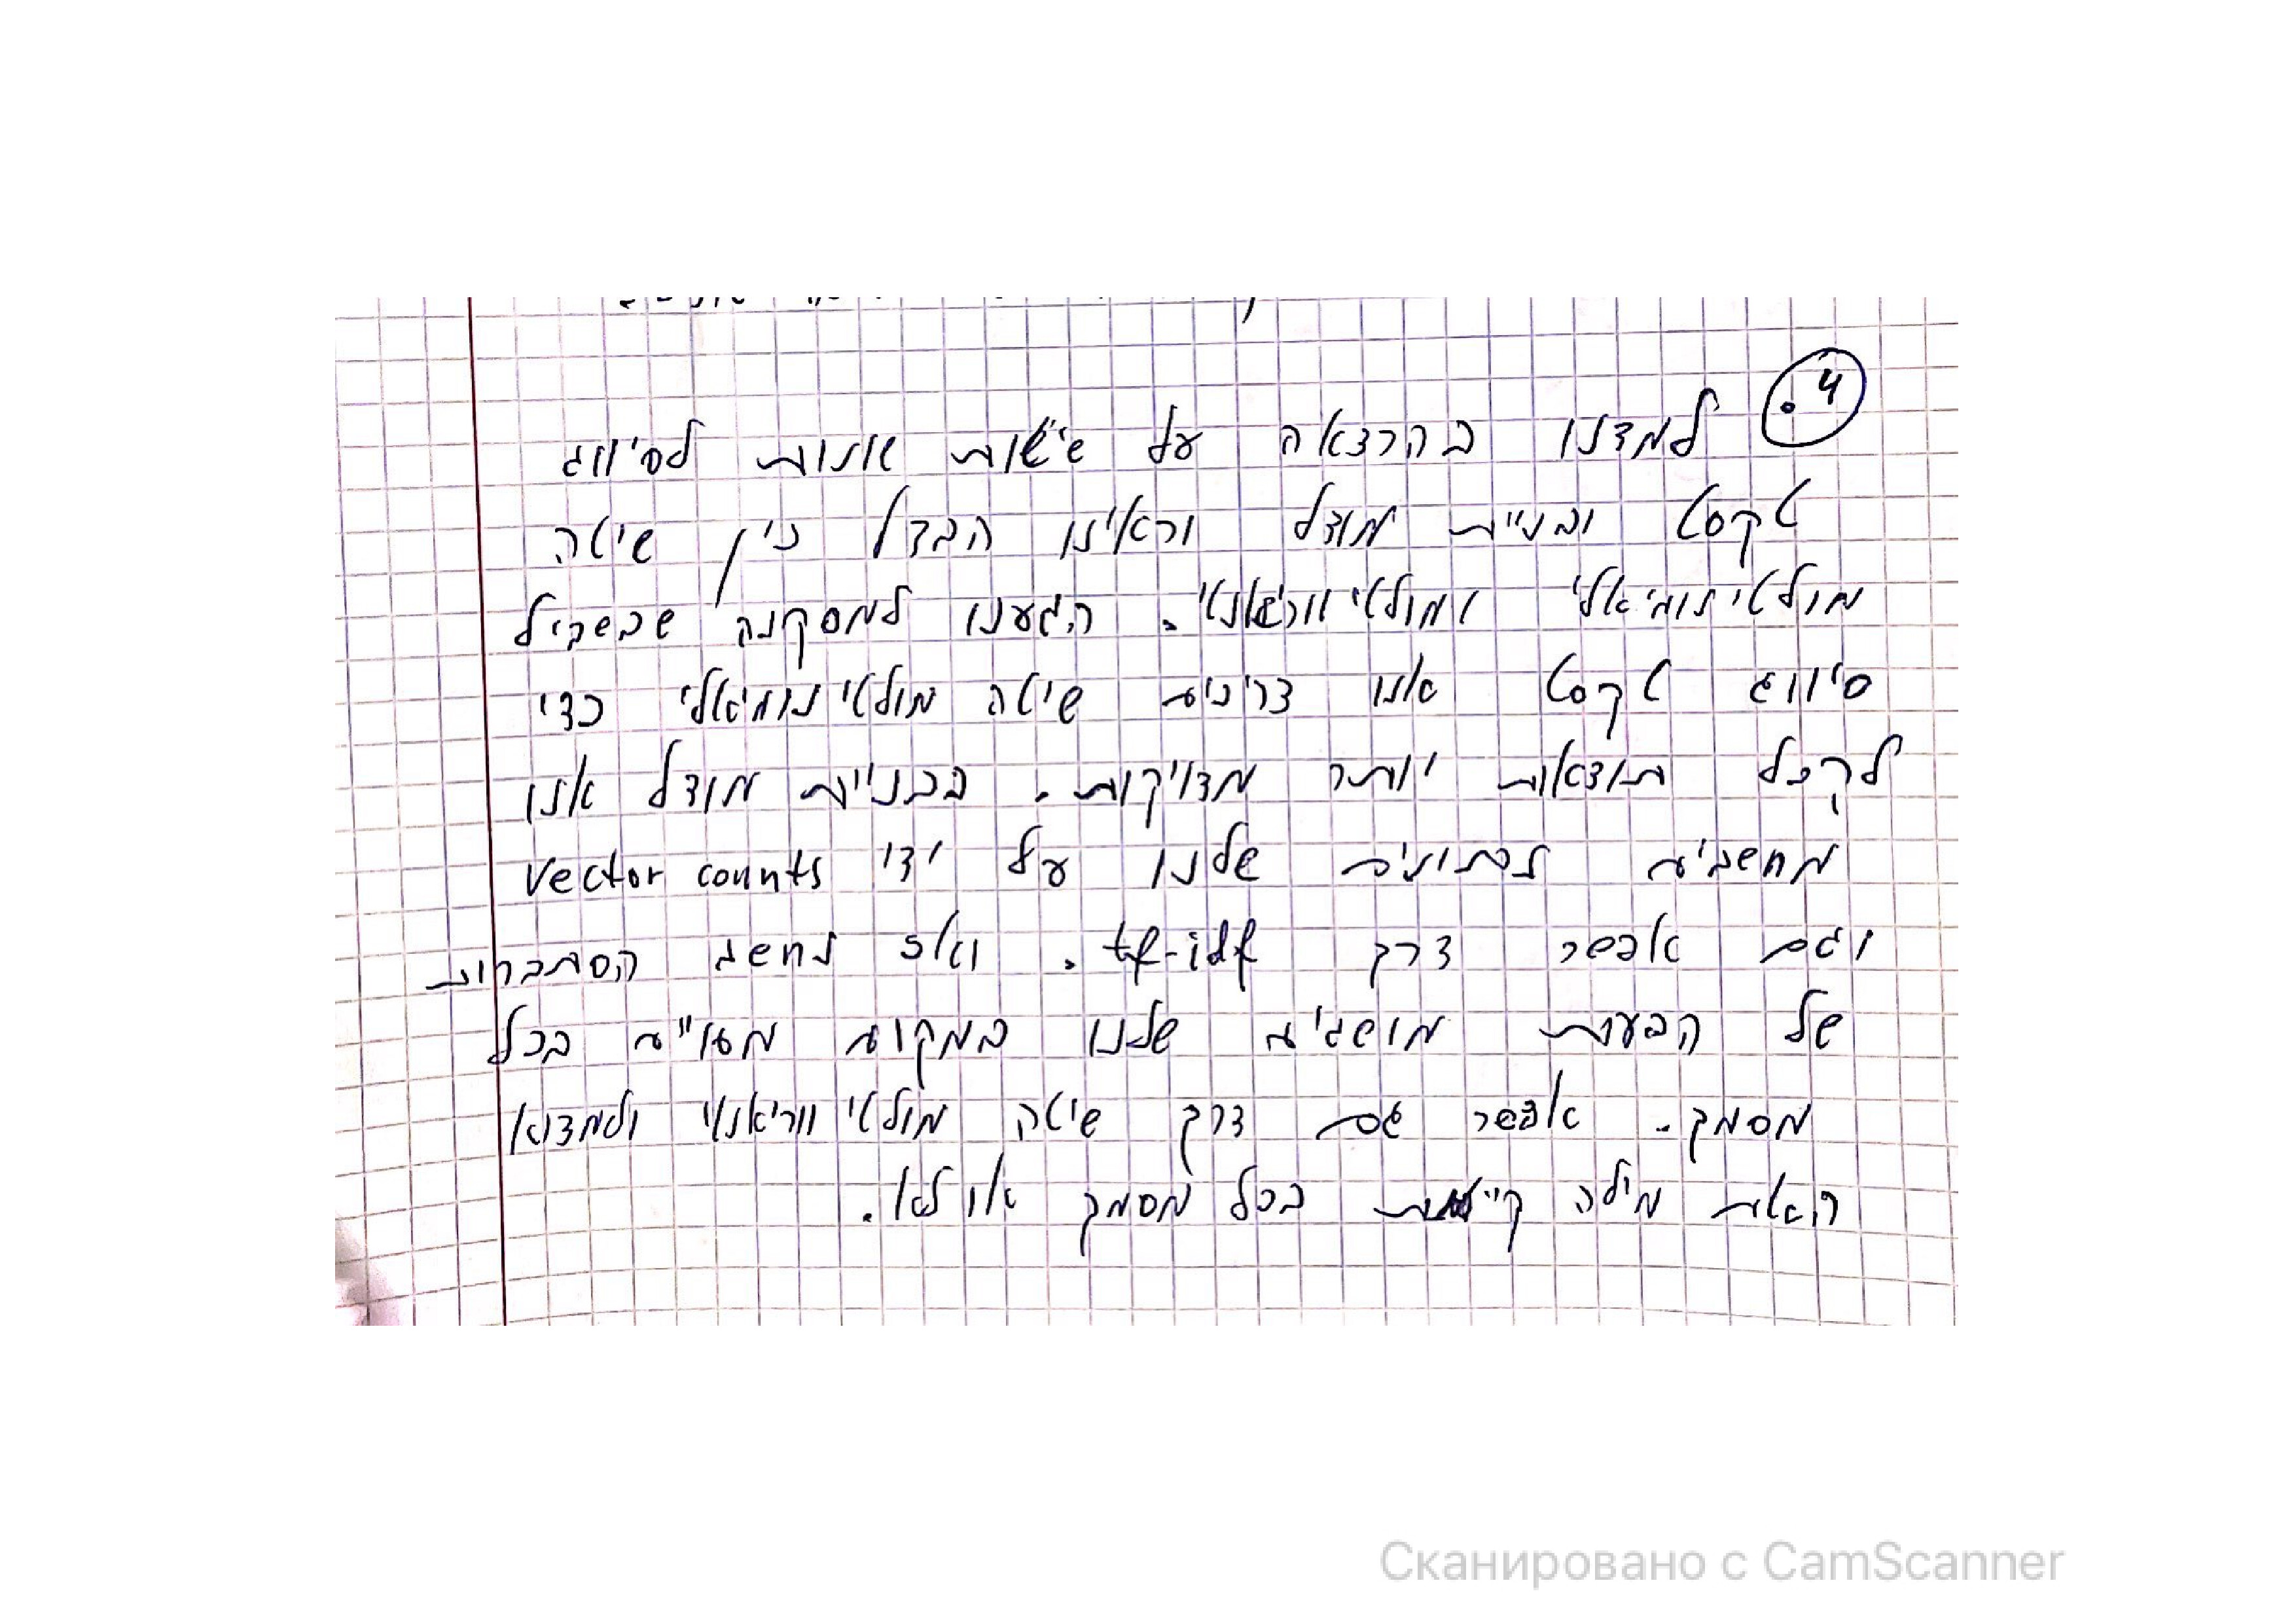 4.
למדנו בהרצאה על שיטות שונות לסיווג
טקסט ובניית מודל וראינו הבדל בין שיטה
מולטינומיאלי ומולטיווריאנטי. הגענו למסקנה שבשביל
סיווג טקסט אנו צריכים שיטה מולטינומיאלי כדי
לקבל תוצאות יותר מדויקות. בבניית מודל אנו
מחשבים נתונים שלנו על ידי vector counts
וגם אפשר דרך tf-idf. ואז נחשב הסתברות
של הבעות מושגים שלנו במקום מסויים בכל
מסמך. אפשר גם דרך שיטה מולטיווריאנטי ולמצוא
האם מילה קיימת בכל מסמך או לא.
Сканировано с CamScanner